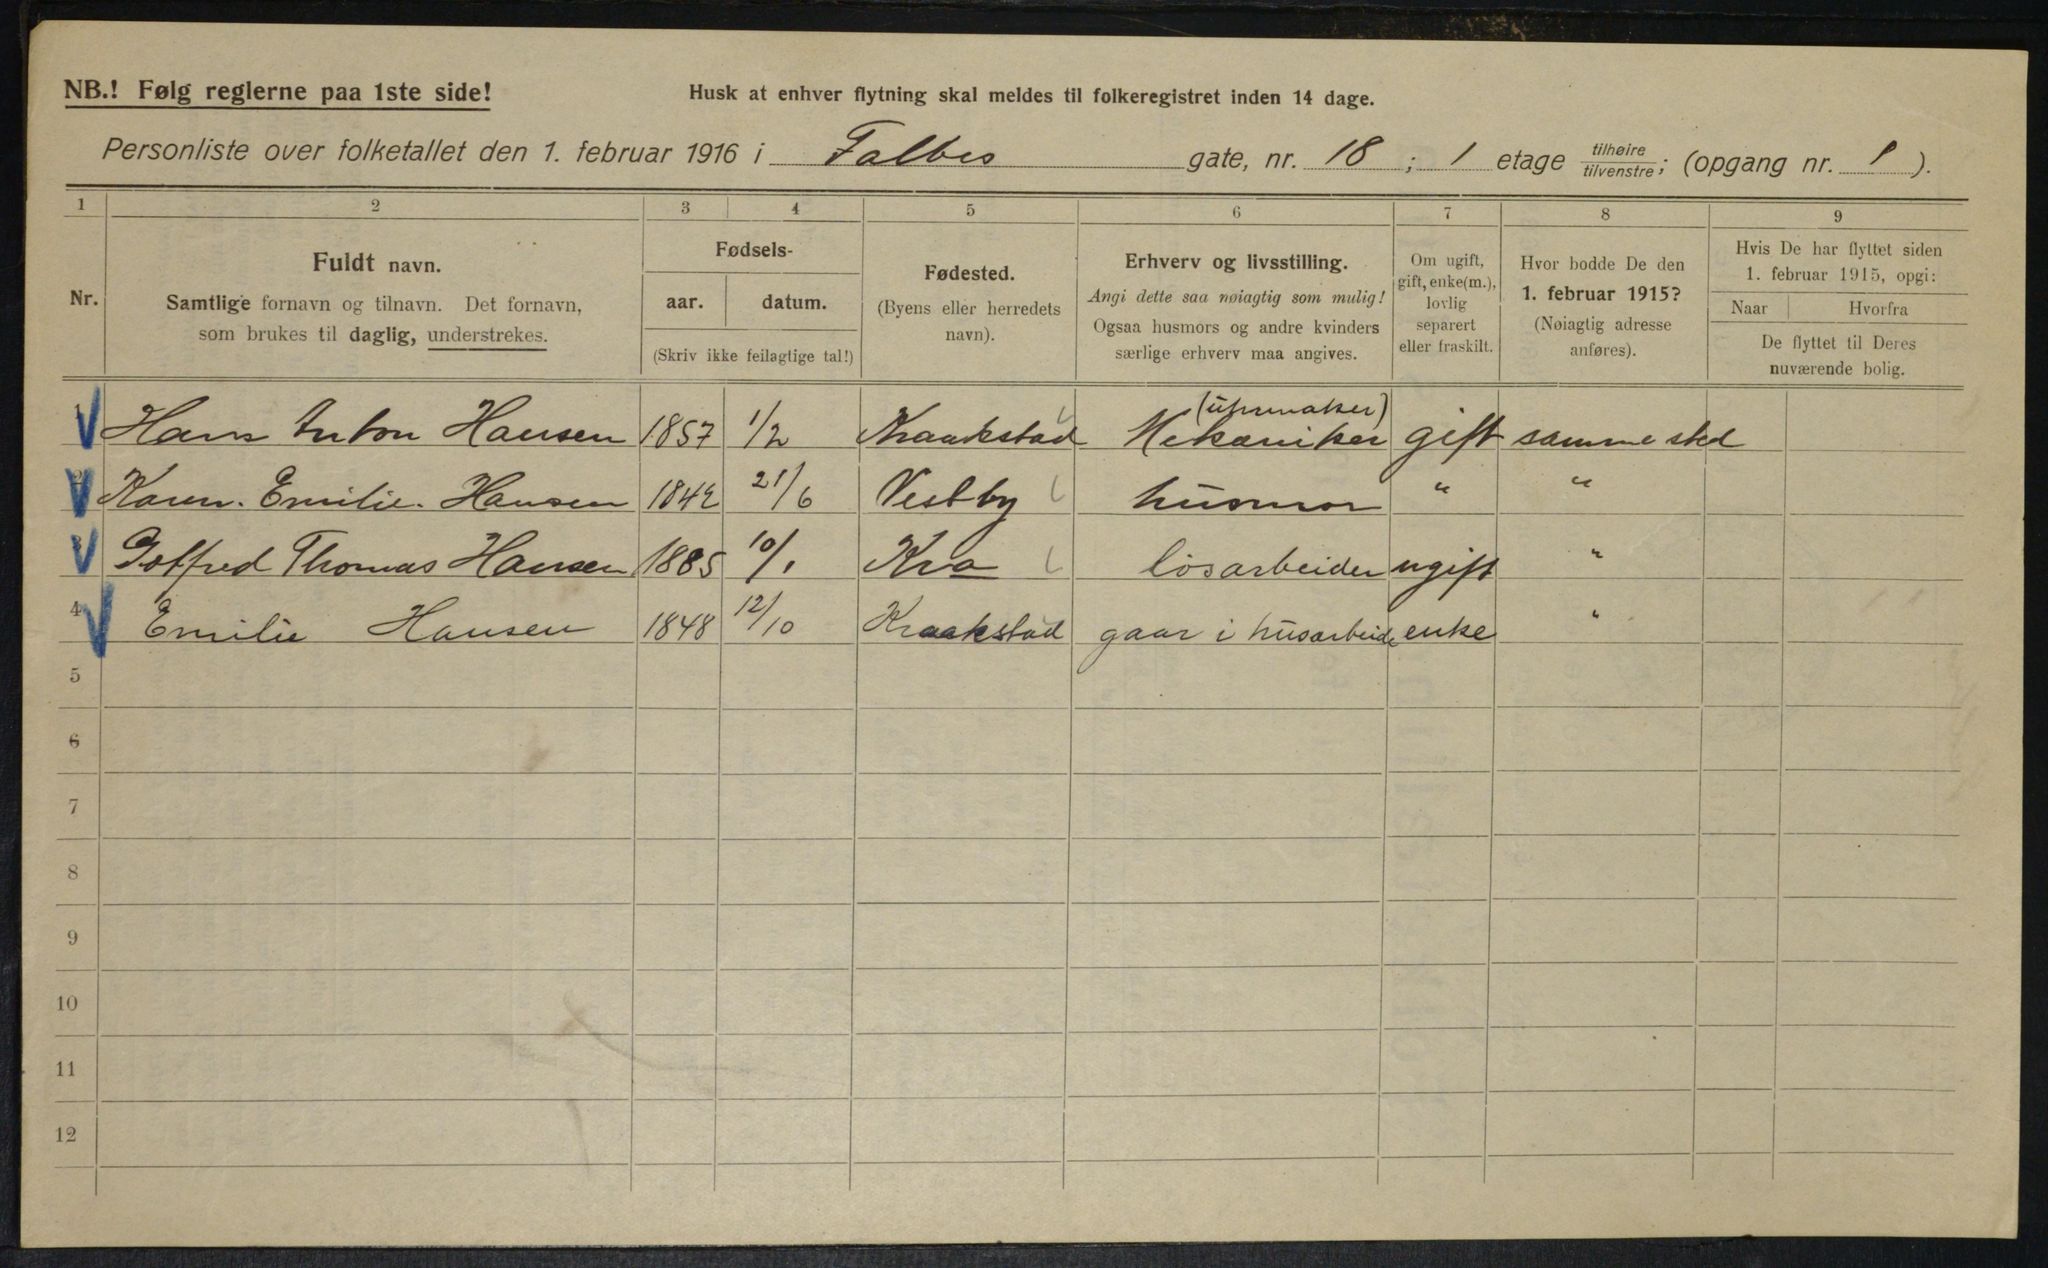 NB.! Følg reglerne paa 1ste side!
Husk at enhver flytning skal meldes til folkeregistret inden 14 dage.
Personliste over folketallet den 1. februar 1916 i Falbes gate, nr. 18 ; 1 etage tilhøire/tilvenstre; (opgang nr. 1 ).
1 2 3 4 5 6 7 8 9
Nr.
Fuldt navn.
Samtlige fornavn og tilnavn. Det fornavn,
som brukes til daglig, understrekes.
Fødsels-
aar. datum.
(Skriv ikke feilagtige tal!)
Fødested.
(Byens eller herredets
navn).
Erhverv og livsstilling.
Angi dette saa nøiagtig som mulig!
Ogsaa husmors og andre kvinders
særlige erhverv maa angives.
Om ugift,
gift, enke(m.),
lovlig
separert
eller fraskilt.
Hvor bodde De den
1. februar 1915?
(Nøiagtig adresse
anføres).
Hvis De har flyttet siden
1. februar 1915, opgi:
Naar Hvorfra
De flyttet til Deres
nuværende bolig.
(uhrmaker)
1 Hans Anton Hansen 1857 1/2 Kraakstad Mekaniker gift samme sted
2 Karen. Emilie. Hansen 21/6 Vestby husmor " "
3 Gotfred Thomas Hansen 1885 10/1 Kra løsarbeider ugift "
4 Emilie Hansen 1848 12/10 Kraakstad gaar i husarbeide enke "
5
6
7
8
9
10
11
12